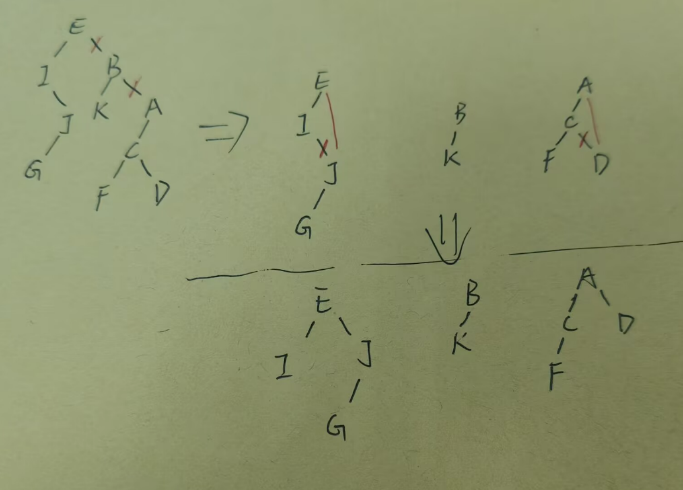 E
I B
J K A
G C
F D
E
I
J
G
B
K
A
C
F D
E
I J
G
B
K
A
C D
F